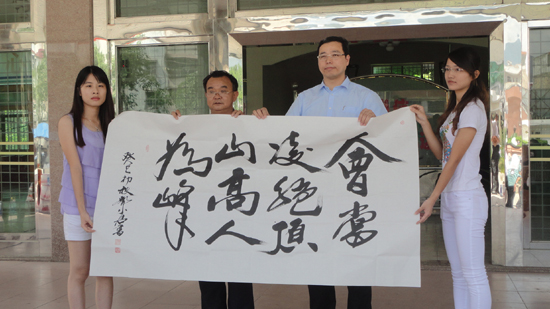 會當
凌絶頂
山高人
為峰
癸巳初秋